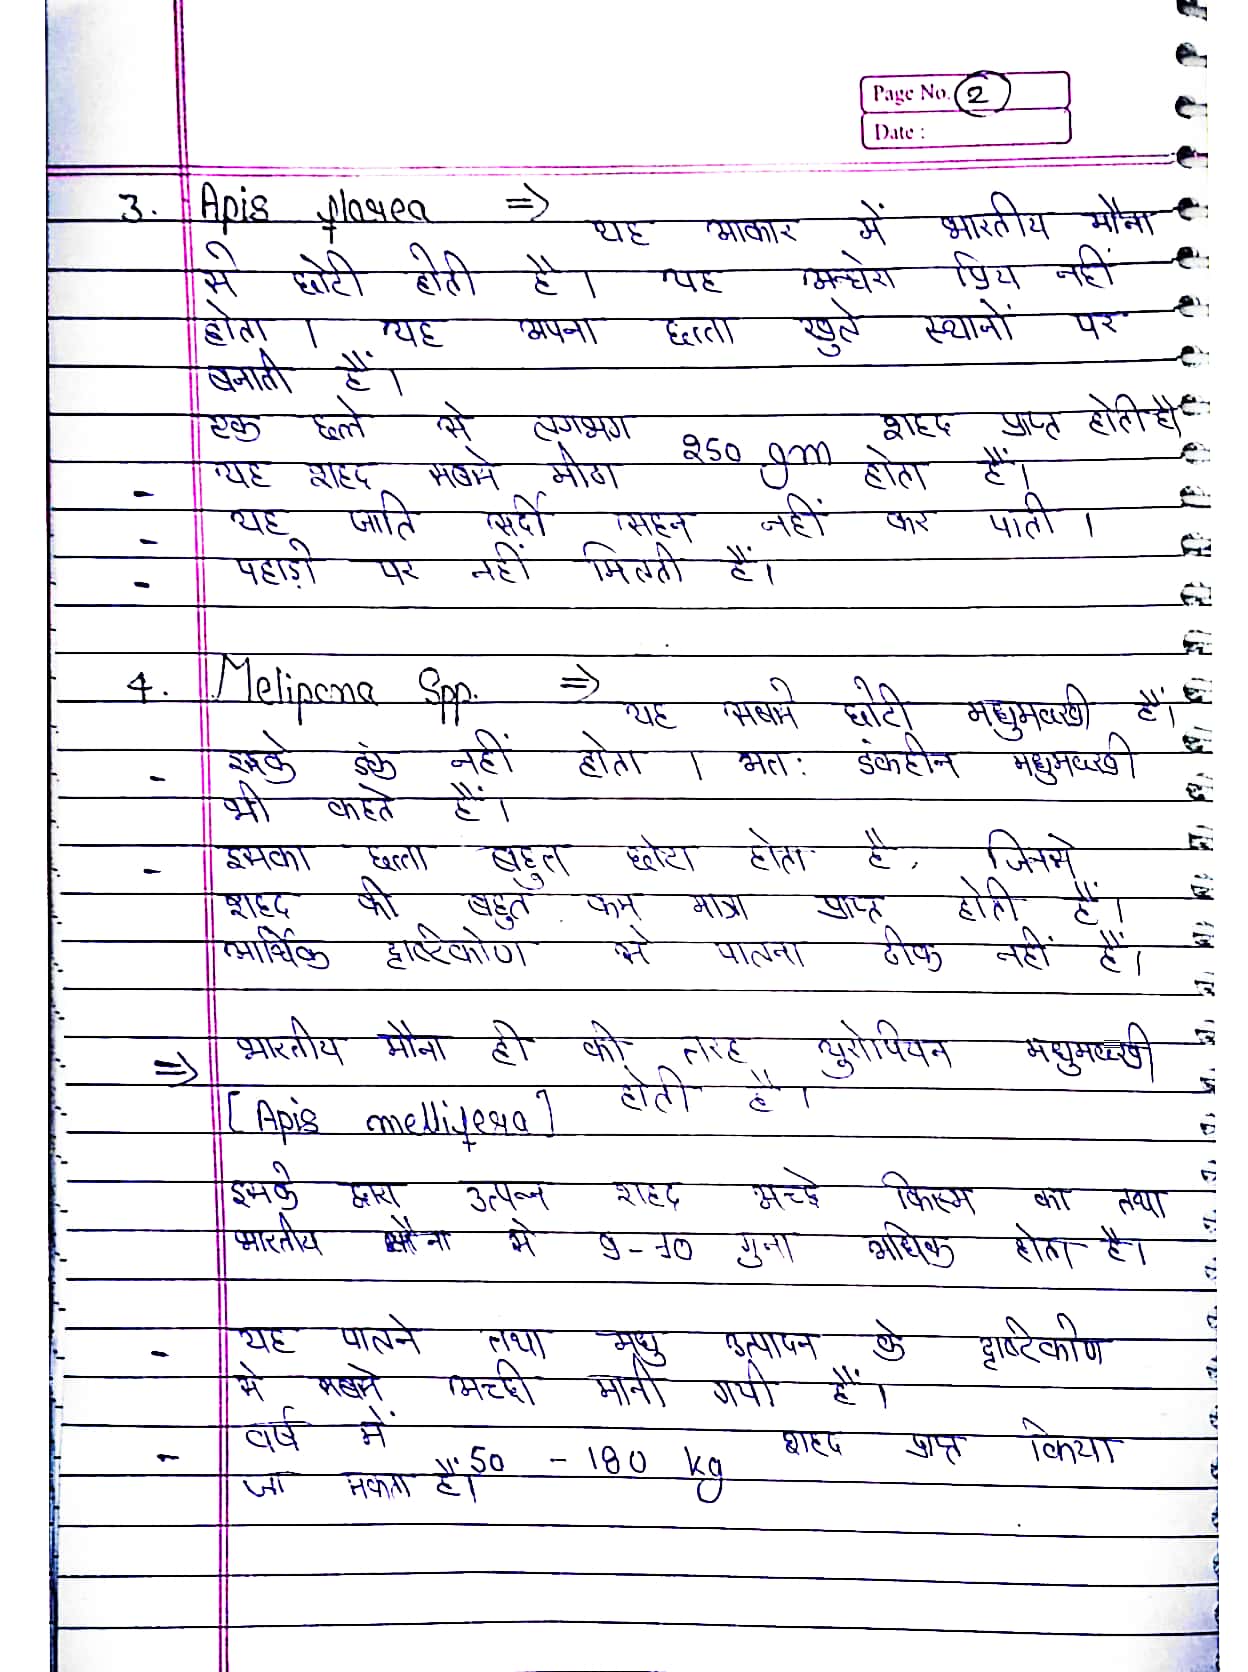 Page No. 2
Date :
3. Apis florea ⇒ यह आकार में भारतीय मौना
से छोटी होती है। यह अन्धेरा प्रिय नहीं
होता। यह अपना छत्ता खुले स्थानों पर
बनाती हैं।
एक छत्ते से लगभग 250 gm शहद प्राप्त होती है
- यह शहद सबसे मीठा होता हैं।
- यह जाति सर्दी सहन नहीं कर पाती।
- पहाड़ी पर नहीं मिलती हैं।
4. Melipona Spp. ⇒ यह सबसे छोटी मधुमक्खी हैं।
- इसके डंक नहीं होता। अतः डंकहीन मधुमक्खी
भी कहते हैं।
- इसका छत्ता बहुत छोटा होता है, जिससे
शहद की बहुत कम मात्रा प्राप्त होती हैं।
आर्थिक दृष्टिकोण से पालना ठीक नहीं हैं।
⇒ भारतीय मौना ही की तरह युरोपियन मधुमक्खी
[Apis mellifera] होती है।
इसके द्वारा उत्पन्न शहद अच्छे किस्म का तथा
भारतीय मौना से 9-10 गुना अधिक होता है।
- यह पालने तथा मधु उत्पादन के दृष्टिकोण
से सबसे अच्छी मानी गयी हैं।
- वर्ष में 50 - 180 kg शहद प्राप्त किया
जा सकता हैं।